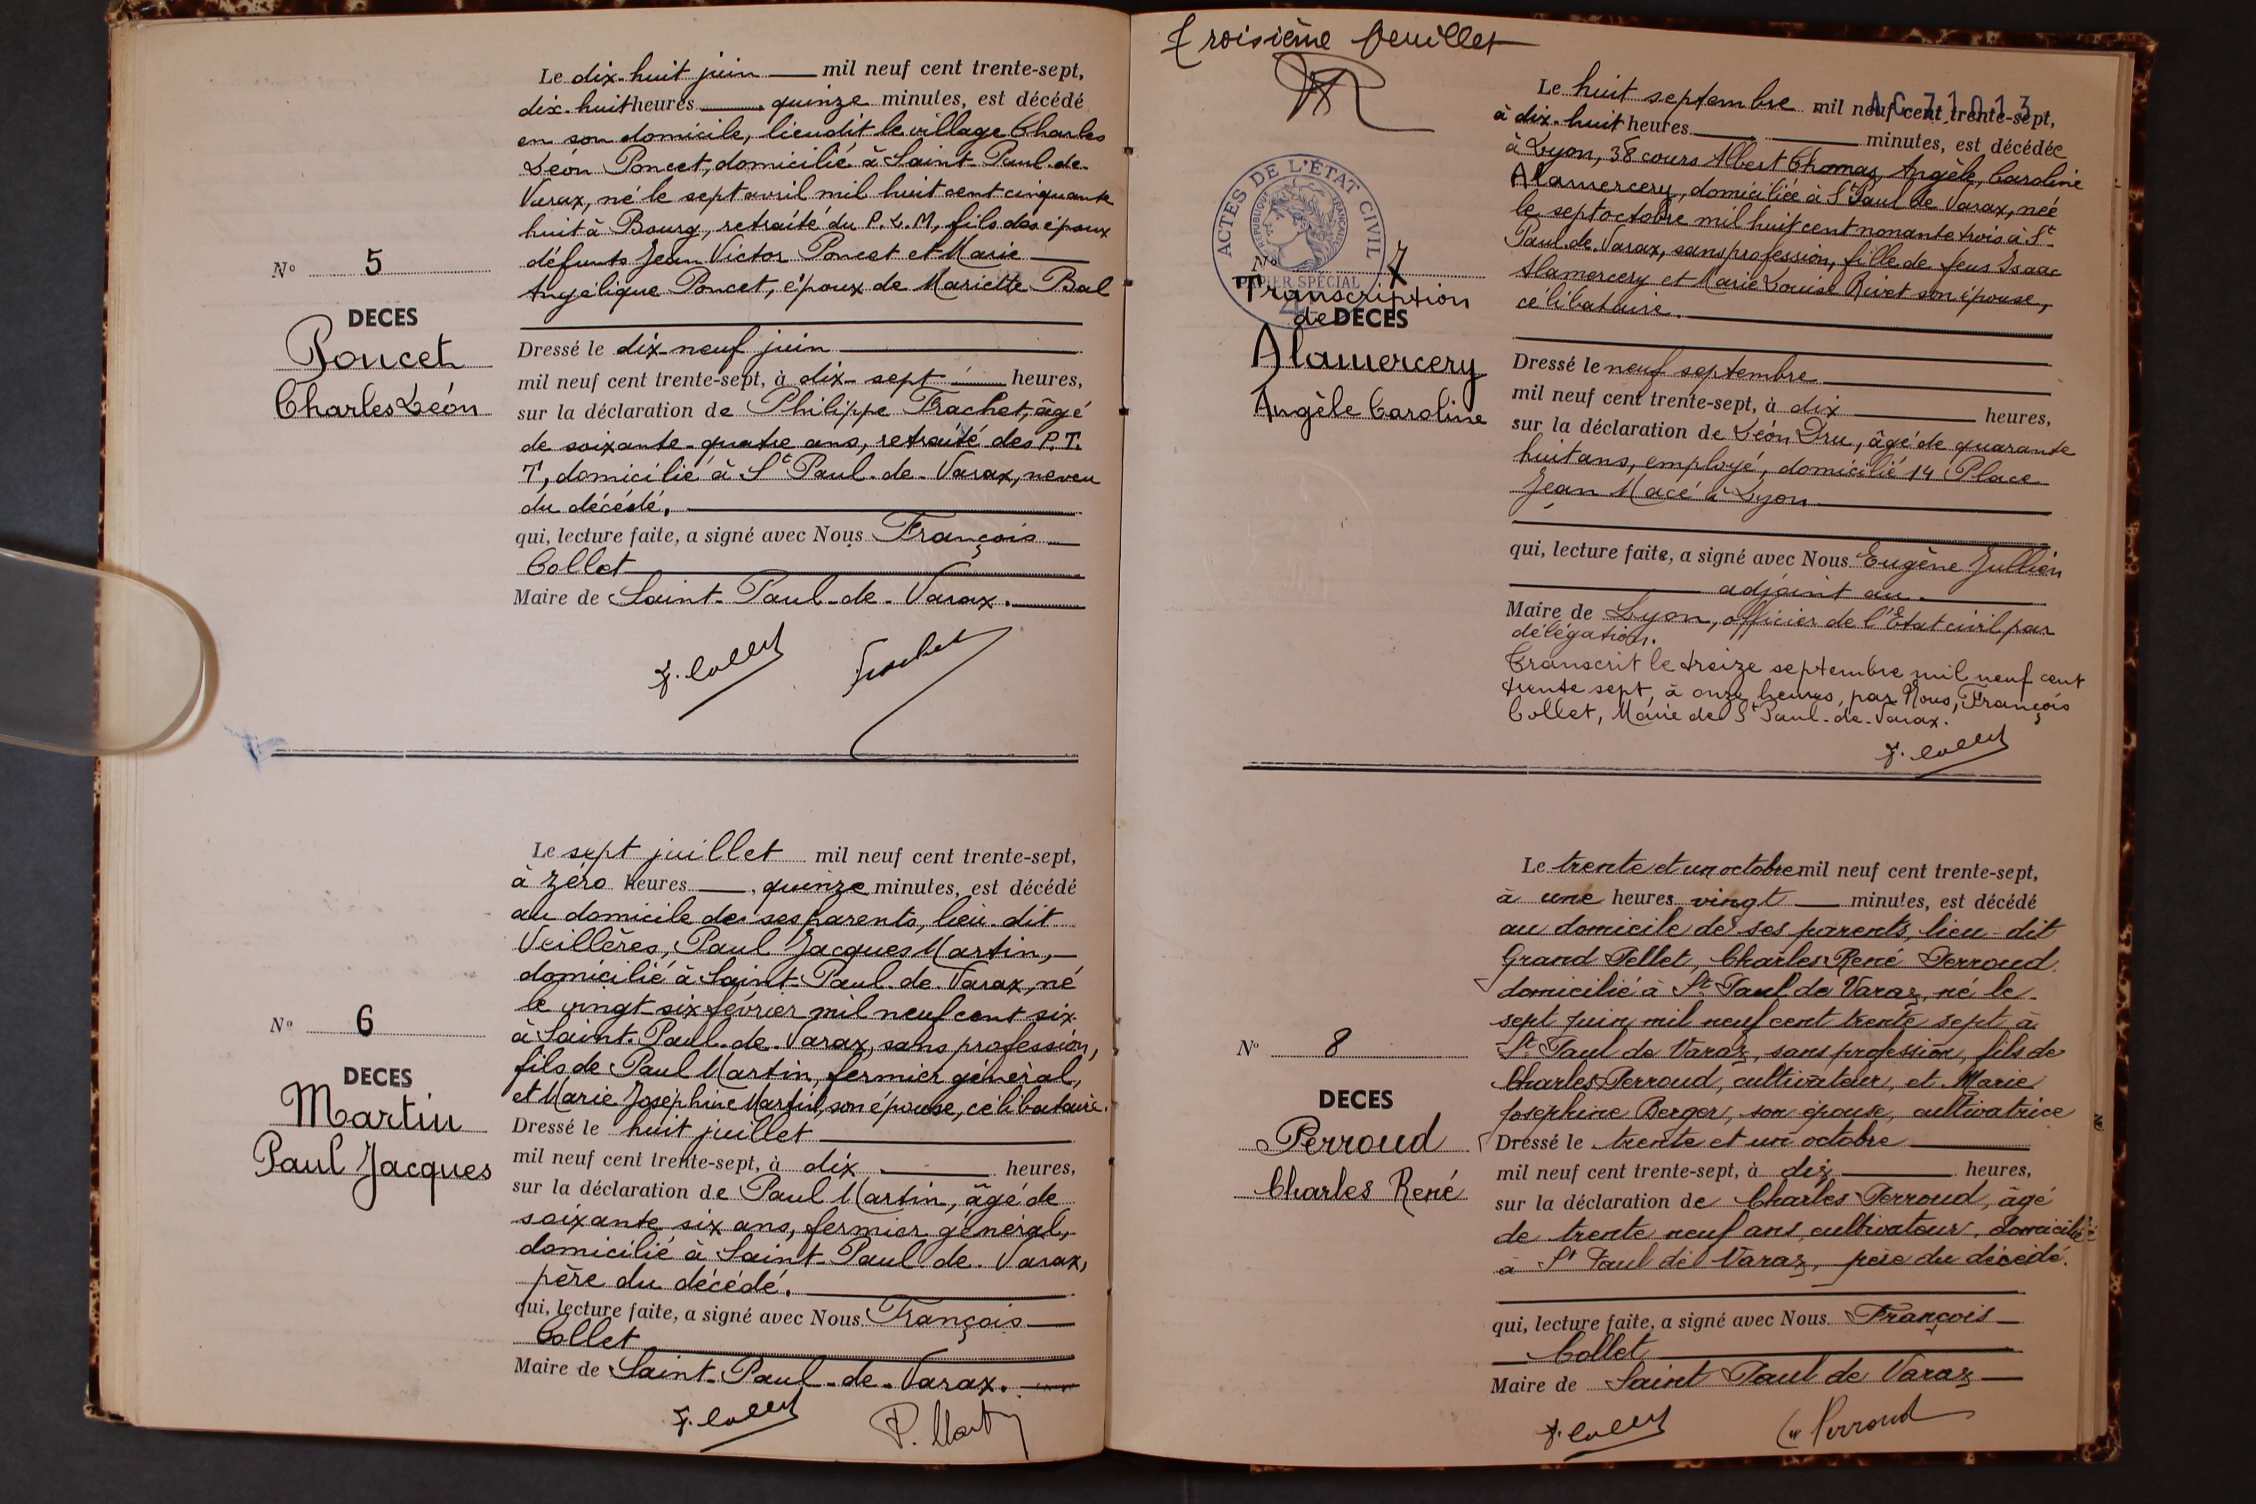 Le dix-huit juin mil neuf cent trente-sept,
dix-huit heures quinze minutes, est décédé
en son domicile, lieudit le village Charles
Léon Poncet, domicilié à Saint-Paul-de-
Varax, né le sept avril mil huit cent cinquante
huit à Bourg, retraité du P.L.M, fils des époux
défunts Jean Victor Poncet et Marie
Angélique Poncet, époux de Mariette Bal
N° 5
DECES
Poncet
Charles Léon
Dressé le dix-neuf juin
mil neuf cent trente-sept, à dix-sept heures,
sur la déclaration de Philippe Trachet, âgé
de soixante-quatre ans, retraité des P.T.
T, domicilié à St Paul-de-Varax, neveu
du décédé.
qui, lecture faite, a signé avec Nous François
Collet
Maire de Saint-Paul-de-Varax.
F. Collet
Trachet
Le sept juillet mil neuf cent trente-sept,
à zéro heures quinze minutes, est décédé
au domicile de ses parents, lieu-dit
Veillères, Paul Jacques Martin,
domicilié à Saint-Paul-de-Varax, né
le vingt-six février mil neuf cent six
à Saint-Paul-de-Varax, sans profession,
fils de Paul Martin, fermier général,
et Marie Joséphine Martin, son épouse, célibataire.
N° 6
DECES
Martin
Paul Jacques
Dressé le huit juillet
mil neuf cent trente-sept, à dix heures,
sur la déclaration de Paul Martin, âgé de
soixante six ans, fermier général,
domicilié à Saint-Paul-de-Varax,
père du décédé.
qui, lecture faite, a signé avec Nous François
Collet
Maire de Saint-Paul-de-Varax.
F. Collet
P. Martin
Troisième feuillet
AC71013
ACTES DE L'ÉTAT CIVIL
RÉPUBLIQUE FRANÇAISE
PAPIER SPÉCIAL
Le huit septembre mil neuf cent trente-sept,
à dix-huit heures minutes, est décédée
à Lyon, 38 cours Albert Thomas, Angèle, Caroline
Alamercery, domiciliée à St Paul de Varax, née
le sept octobre mil huit cent nonante trois à St
Paul-de-Varax, sans profession, fille de feus Isaac
Alamercery et Marie Louise Rivet son épouse,
célibataire.
N° 7
Transcription
de DECES
Alamercery
Angèle Caroline
Dressé le neuf septembre
mil neuf cent trente-sept, à dix heures,
sur la déclaration de Léon Dru, âgé de quarante
huit ans, employé, domicilié 14 Place
Jean Macé à Lyon
qui, lecture faite, a signé avec Nous Eugène Jullien
adjoint au
Maire de Lyon, officier de l'Etat civil par
délégation.
Transcrit le treize septembre mil neuf cent
trente sept, à onze heures, par Nous, François
Collet, Maire de St Paul-de-Varax.
F. Collet
Le trente et un octobre mil neuf cent trente-sept,
à une heures vingt minutes, est décédé
au domicile de ses parents, lieu-dit
Grand Pellet, Charles René Perroud
domicilié à St Paul de Varax, né le
sept juin mil neuf cent trente sept à
St Paul de Varax, sans profession, fils de
Charles Perroud, cultivateur, et Marie
Joséphine Berger, son épouse, cultivatrice
N° 8
DECES
Perroud
Charles René
Dressé le trente et un octobre
mil neuf cent trente-sept, à dix heures,
sur la déclaration de Charles Perroud, âgé
de trente neuf ans, cultivateur, domicilié
à St Paul de Varax, père du décédé.
qui, lecture faite, a signé avec Nous François
Collet
Maire de Saint Paul de Varax
F. Collet
Perroud